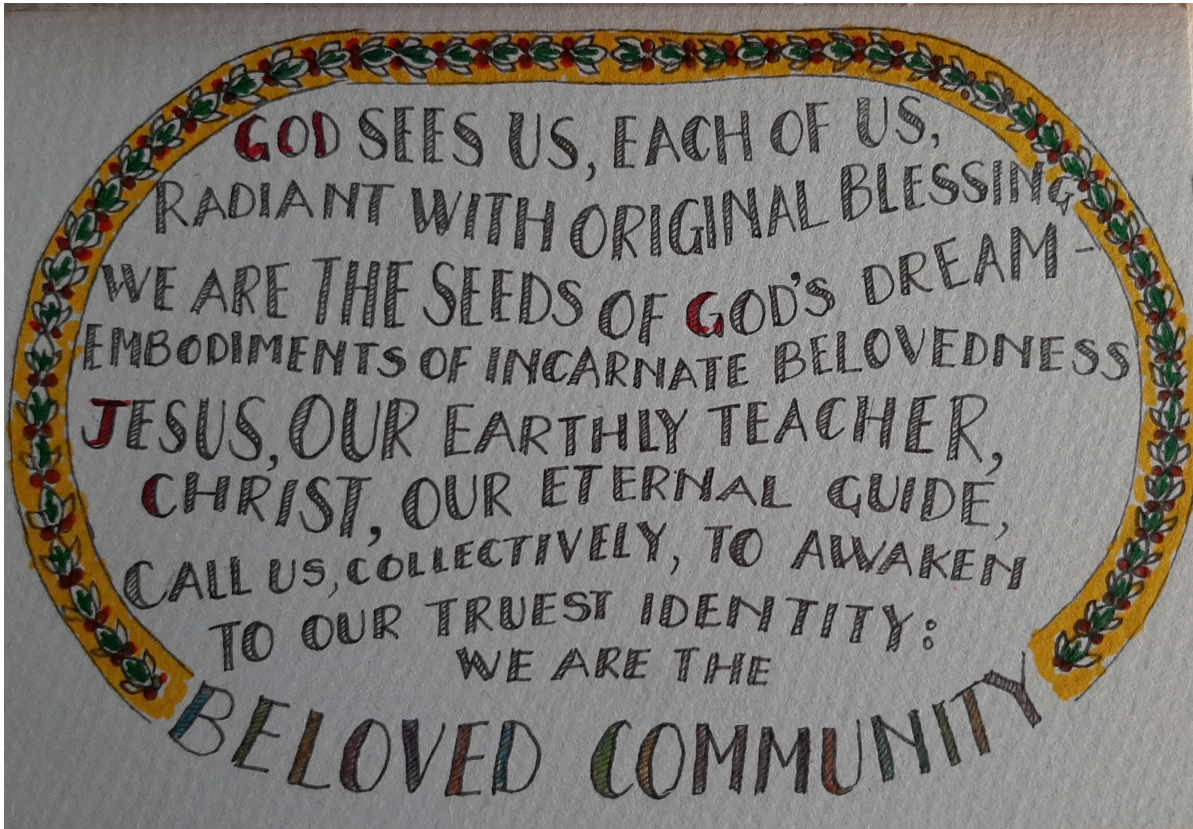 GOD SEES US, EACH OF US,
RADIANT WITH ORIGINAL BLESSING
WE ARE THE SEEDS OF GOD'S DREAM -
EMBODIMENTS OF INCARNATE BELOVEDNESS
JESUS, OUR EARTHLY TEACHER,
CHRIST, OUR ETERNAL GUIDE,
CALL US, COLLECTIVELY, TO AWAKEN
TO OUR TRUEST IDENTITY:
WE ARE THE
BELOVED COMMUNITY